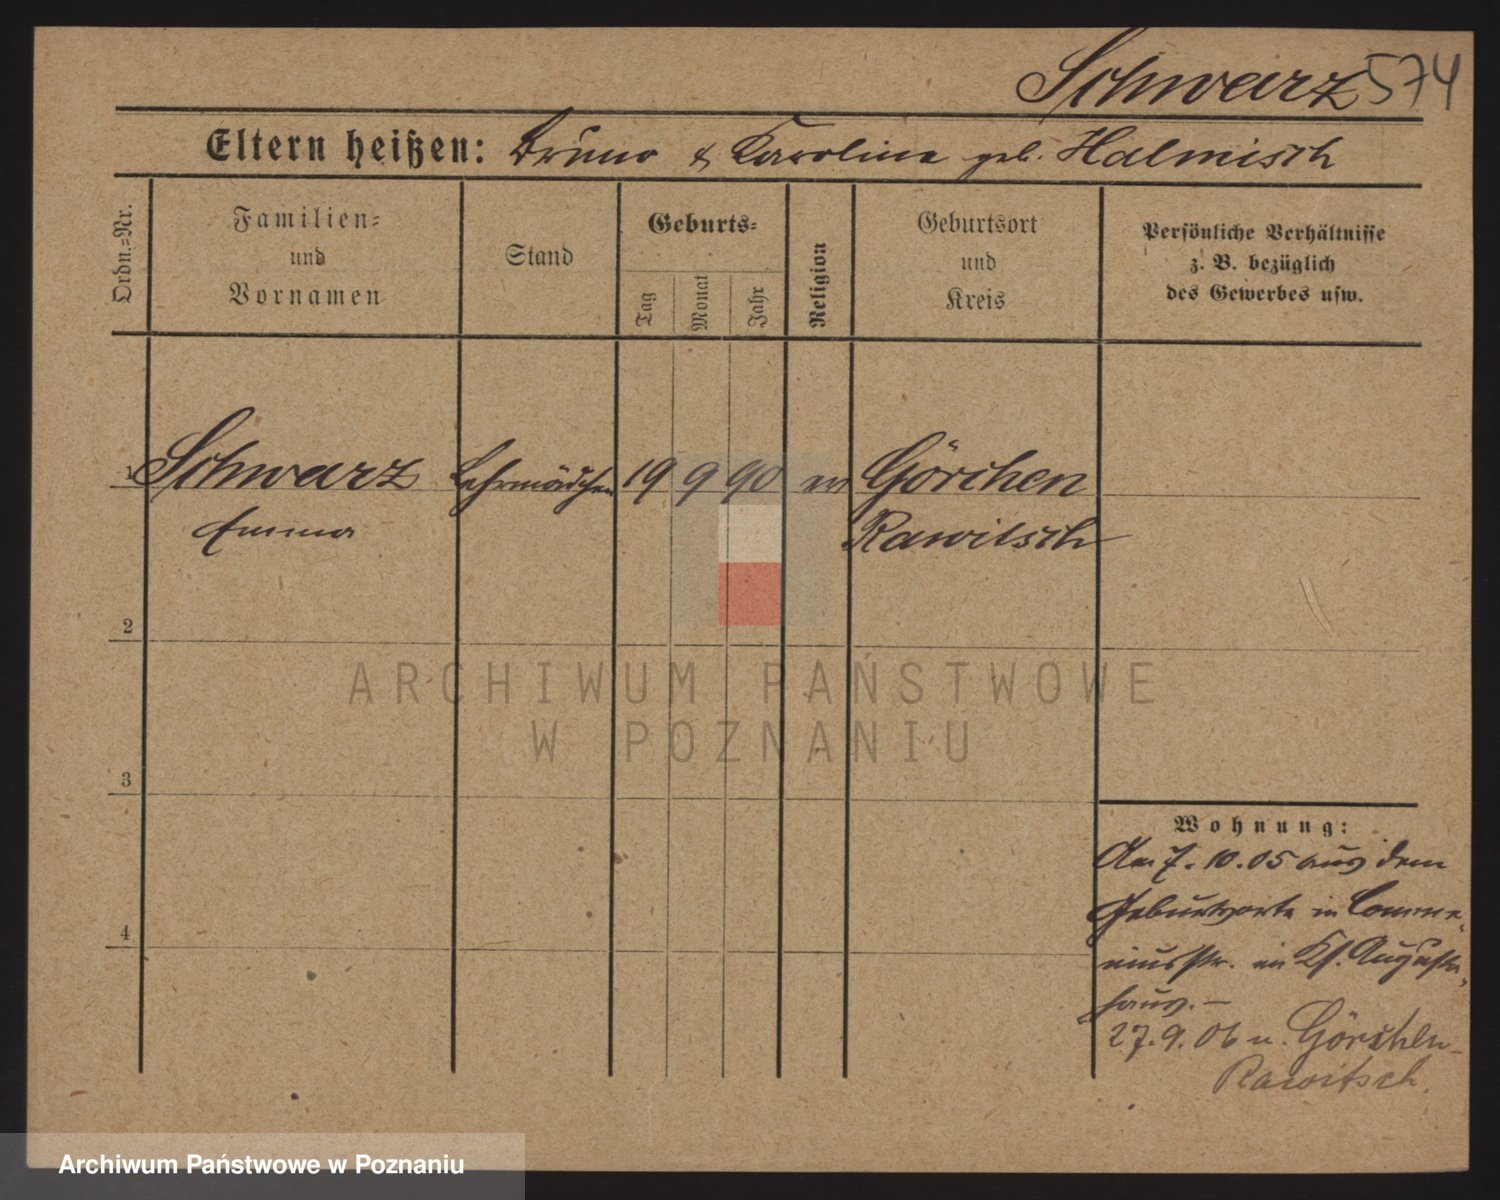 Schwarz 574
Eltern heißen: Bruno & Karoline geb. Halmisch
Ordn.=Nr.
Familien=
und
Vornamen
Stand
Geburts=
Tag
Monat
Jahr
Religion
Geburtsort
und
Kreis
Persönliche Verhältnisse
z. B. bezüglich
des Gewerbes usw.
1 Schwarz Lehrmädchen 19 9 90 ev Görchen
Emma Rawitsch
2
3
4
Wohnung:
Am 7. 10. 05 aus dem
Geburtsorte in Comme-
niusstr. im Ks. Augusta
haus. –
27. 9. 06 n. Görchen-
Rawitsch.
ARCHIWUM PAŃSTWOWE
W POZNANIU
Archiwum Państwowe w Poznaniu